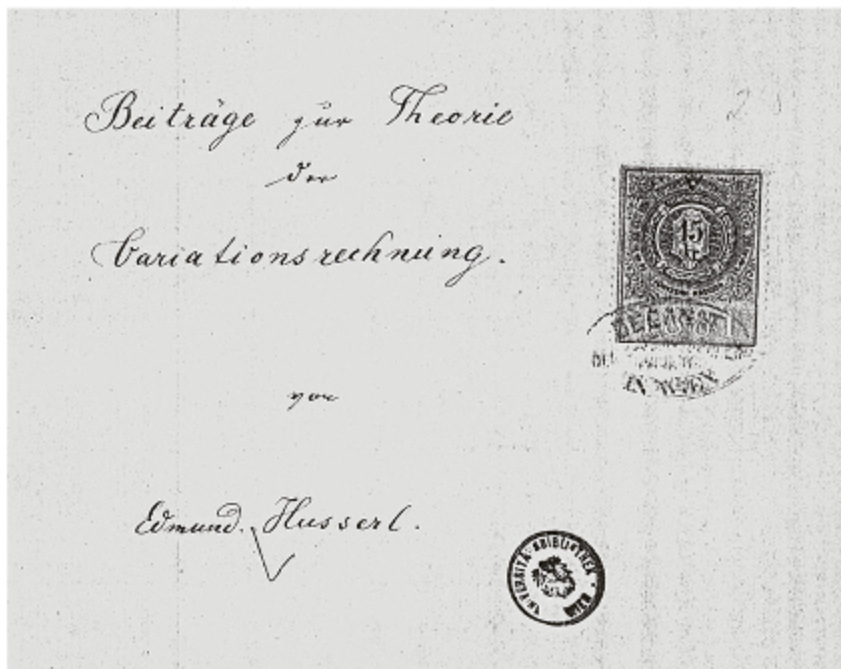 Beiträge zur Theorie
der
Variationsrechnung.
2
15
kr
DECANAT
IN WIEN
von
Edmund Husserl.
UNIVERSITÄTSBIBLIOTHEK WIEN